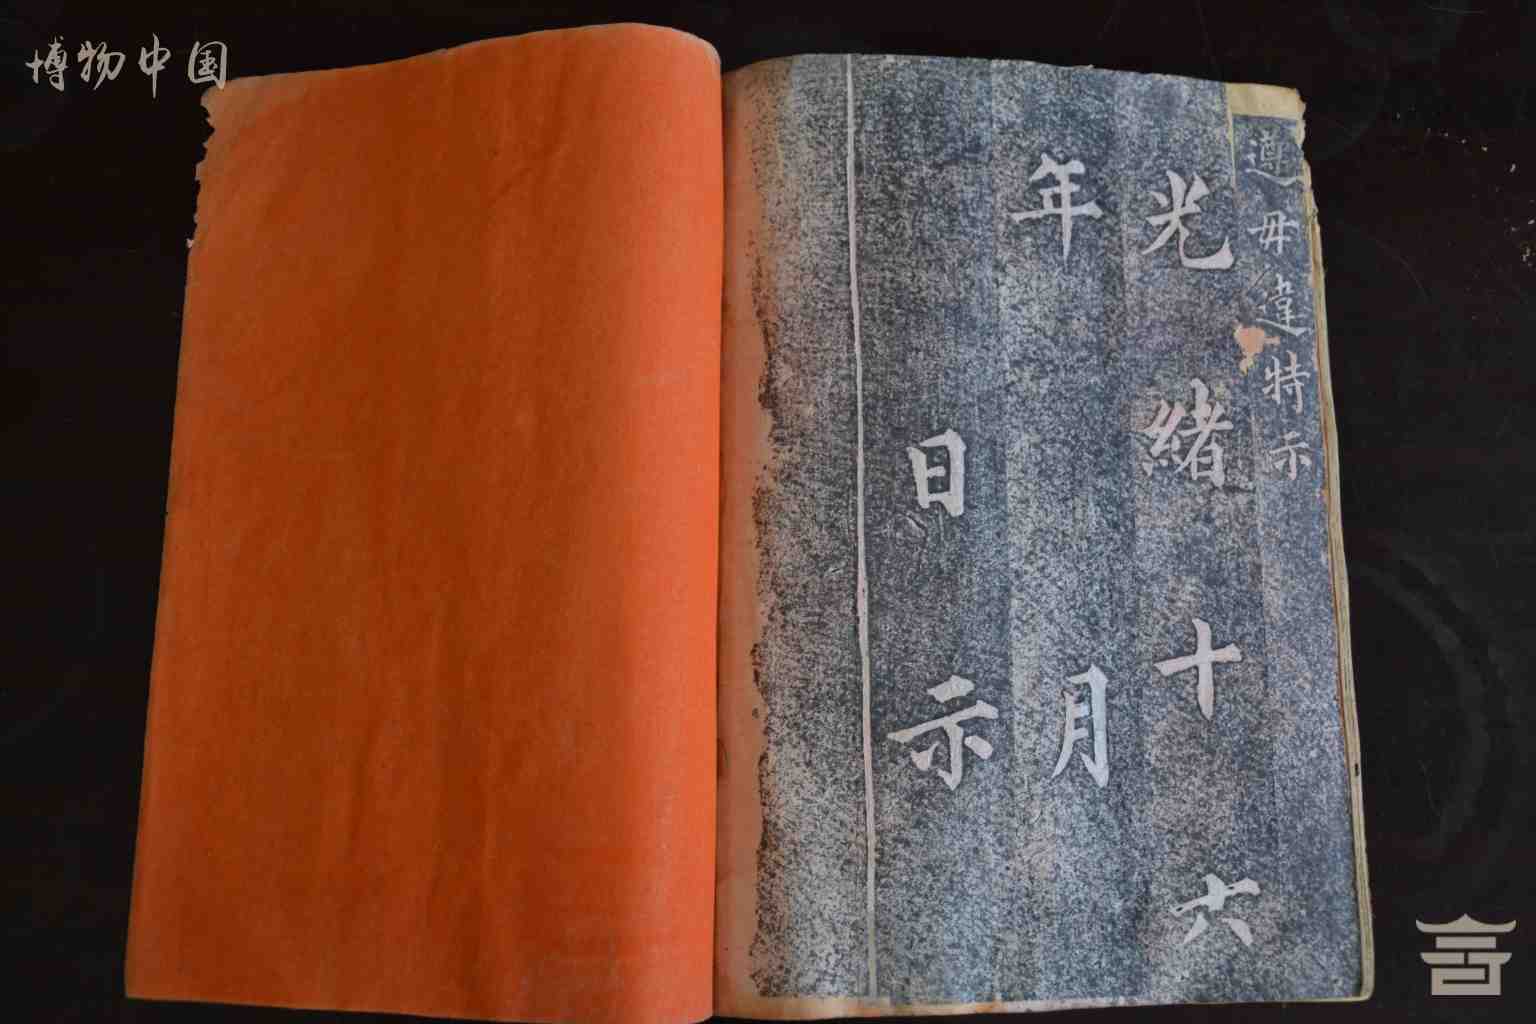 博物中国
遵毋違特示
光緒十六
年月
日示